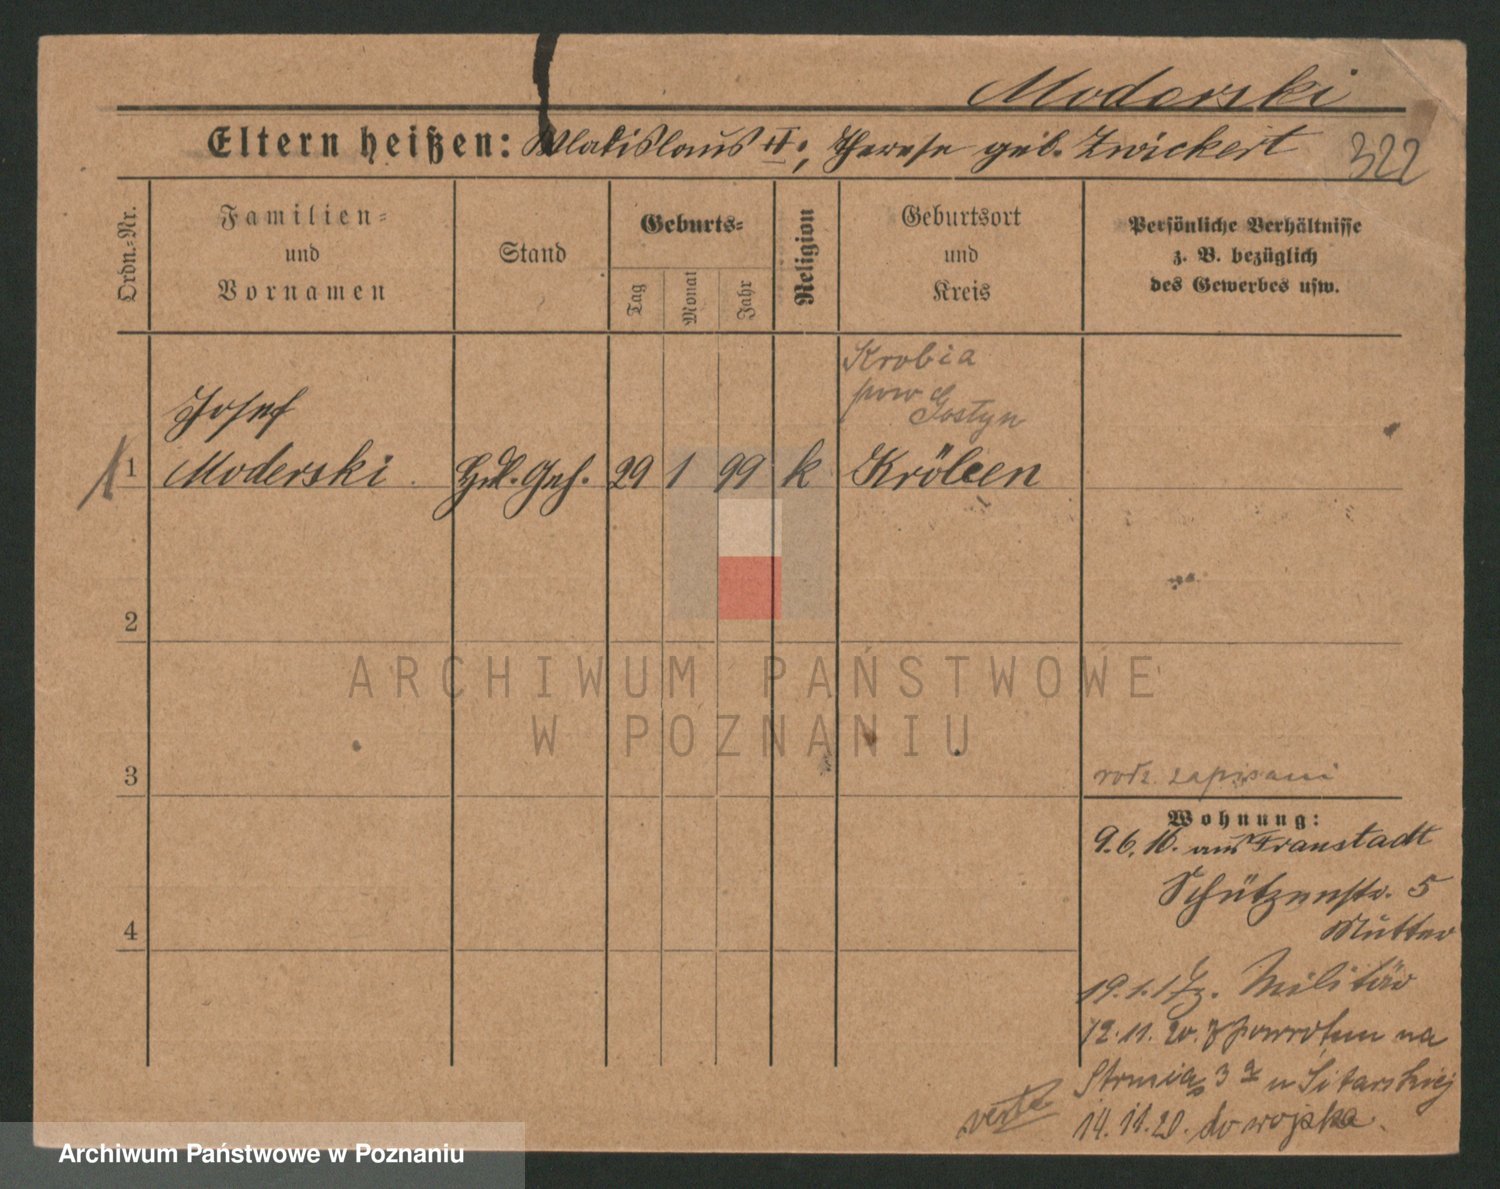 Moderski
Eltern heißen: Wladislaus II, Therese geb. Zwickert
322
Ordn.-Nr.
Familien-
und
Vornamen
Stand
Geburts-
Tag
Monat
Jahr
Religion
Geburtsort
und
Kreis
Persönliche Verhältnisse
z. B. bezüglich
des Gewerbes usw.
Krobia
pow
Gostyn
Josef
1 Moderski Hdl. Geh. 29 1 99 k Kröben
2
ARCHIWUM PAŃSTWOWE
W POZNANIU
3
rodz. zapisani
Wohnung:
9.6.16. aus Fraustadt
Schützenstr. 5
Mutter
4
19.1.17 z. Militär
12.11.20. z powrotem na
Strumia 3a u Sitarskiej
14.11.20. do wojska.
verte
Archiwum Państwowe w Poznaniu